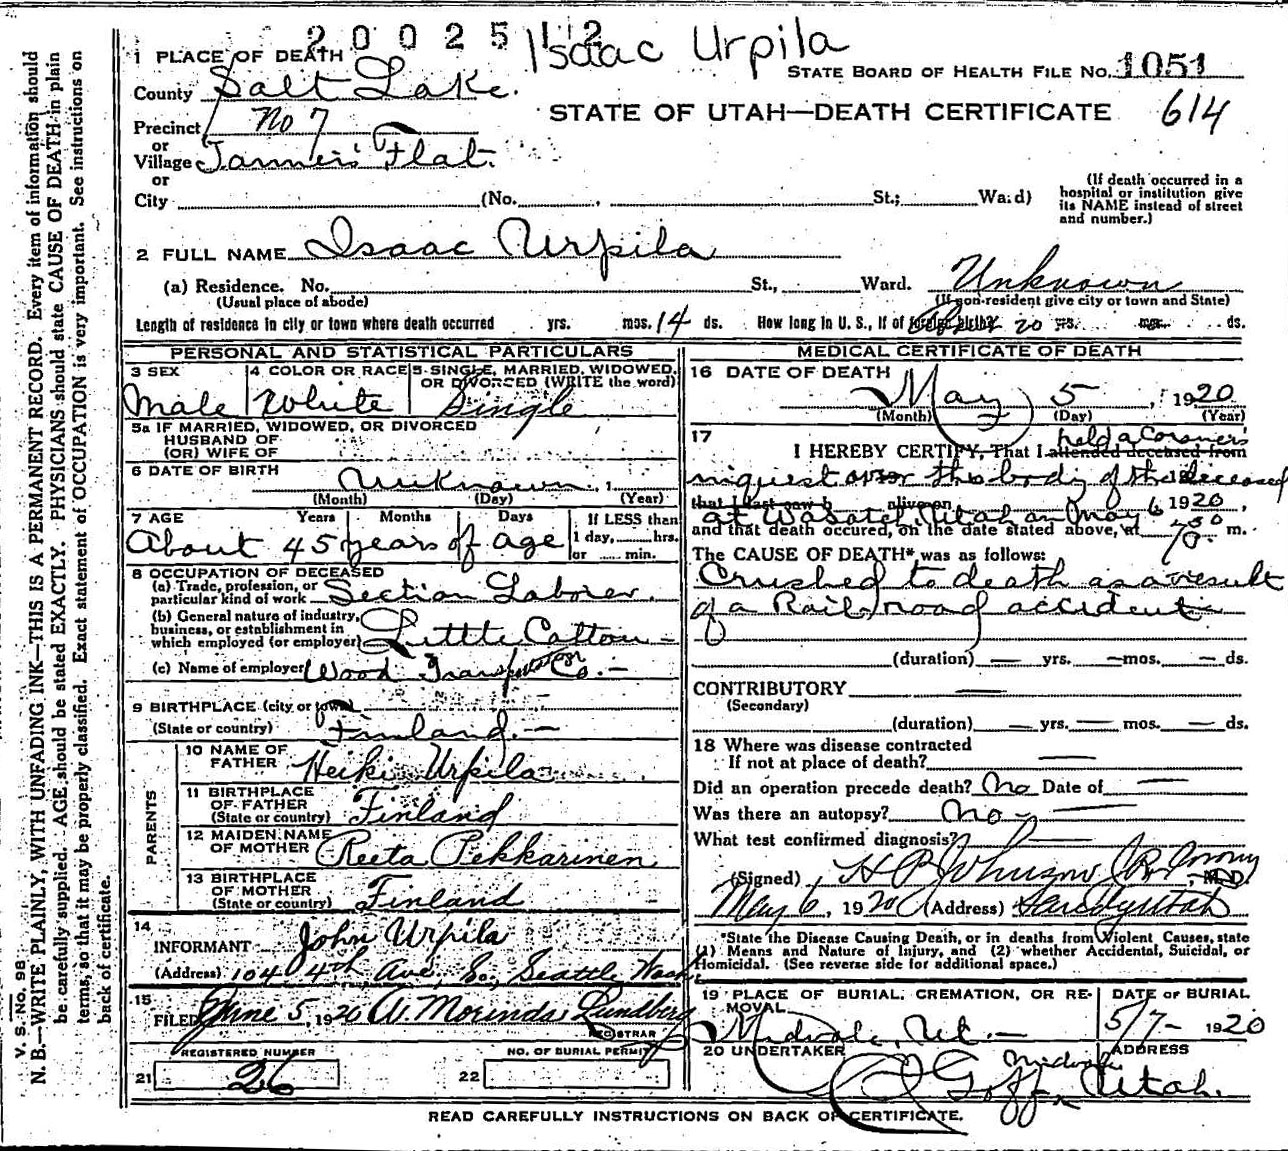 2002512
Isaac Urpila
1 PLACE OF DEATH
STATE BOARD OF HEALTH FILE NO. 1051
County Salt Lake.
STATE OF UTAH—DEATH CERTIFICATE 614
Precinct No 7
or
Village Tanner's Flat.
or
City (No. , St.; Ward)
(If death occurred in a
hospital or institution give
its NAME instead of street
and number.)
2 FULL NAME Isaac Urpila
(a) Residence. No. St., Ward. Unknown
(Usual place of abode) (If non-resident give city or town and State)
Length of residence in city or town where death occurred yrs. mos. 14 ds. How long in U. S., if of foreign birth? 20 yrs. mos. ds.
PERSONAL AND STATISTICAL PARTICULARS
3 SEX 4 COLOR OR RACE 5 SINGLE, MARRIED, WIDOWED,
OR DIVORCED (WRITE the word)
Male White Single
5a IF MARRIED, WIDOWED, OR DIVORCED
HUSBAND OF
(OR) WIFE OF
6 DATE OF BIRTH
Unknown, 1
(Month) (Day) (Year)
7 AGE Years Months Days If LESS than
1 day, hrs.
or min.
About 45 years of age
8 OCCUPATION OF DECEASED
(a) Trade, profession, or
particular kind of work Section Laborer.
(b) General nature of industry,
business, or establishment in
which employed (or employer) Little Cotton-
(c) Name of employer Wood Transportation Co.-
9 BIRTHPLACE (city or town)
(State or country) Finland.-
PARENTS
10 NAME OF
FATHER Heiki Urpila
11 BIRTHPLACE
OF FATHER
(State or country) Finland
12 MAIDEN NAME
OF MOTHER Reeta Pekkarinen
13 BIRTHPLACE
OF MOTHER
(State or country) Finland
14
INFORMANT John Urpila
(Address) 104 4th Ave, So., Seattle Wash
15
FILED June 5, 1920 A. Morinda Lundberg
REGISTRAR
REGISTERED NUMBER NO. OF BURIAL PERMIT
21 26 22
MEDICAL CERTIFICATE OF DEATH
16 DATE OF DEATH
May 5, 1920
(Month) (Day) (Year)
17
held a Coroner's
I HEREBY CERTIFY, That I attended deceased from
inquest over the body of the deceased
that I last saw h alive on 1920,
at Wasatch, Utah on May 6
and that death occured, on the date stated above, at m.
The CAUSE OF DEATH* was as follows:
Crushed to death as a result
of a Rail road accident
(duration) — yrs. — mos. — ds.
CONTRIBUTORY —
(Secondary)
(duration) — yrs. — mos. — ds.
18 Where was disease contracted
If not at place of death? —
Did an operation precede death? No Date of —
Was there an autopsy? No —
What test confirmed diagnosis? —
(Signed) H P Johnson, M.D.
May 6, 1920 (Address) Sandy Utah
*State the Disease Causing Death, or in deaths from Violent Causes, state
(1) Means and Nature of Injury, and (2) whether Accidental, Suicidal, or
Homicidal. (See reverse side for additional space.)
19 PLACE OF BURIAL, CREMATION, OR RE-
MOVAL
DATE OF BURIAL
Midvale, Ut.— 5/7- 1920
20 UNDERTAKER ADDRESS
Goff Midvale Utah.
READ CAREFULLY INSTRUCTIONS ON BACK OF CERTIFICATE.
V. S. No. 98
N. B.—WRITE PLAINLY, WITH UNFADING INK—THIS IS A PERMANENT RECORD. Every item of information should
be carefully supplied. AGE should be stated EXACTLY. PHYSICIANS should state CAUSE OF DEATH in plain
terms, so that it may be properly classified. Exact statement of OCCUPATION is very important. See instructions on
back of certificate.